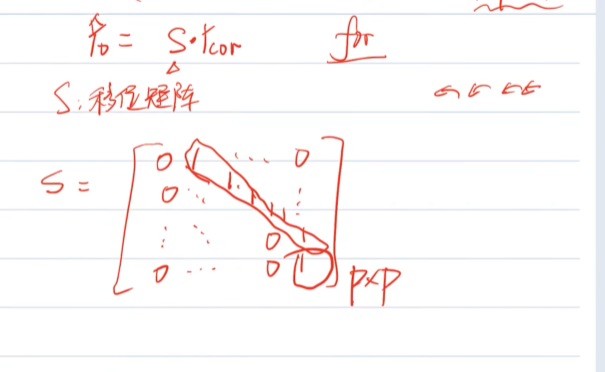 Ŷ₀ = S·Ycor for
S: 移位矩阵
S = [ 0 1 ... 0
0 ⋱ 1 ⋱ ⋮
⋮ ⋱ 0 1
0 ... 0 1 ] p×p